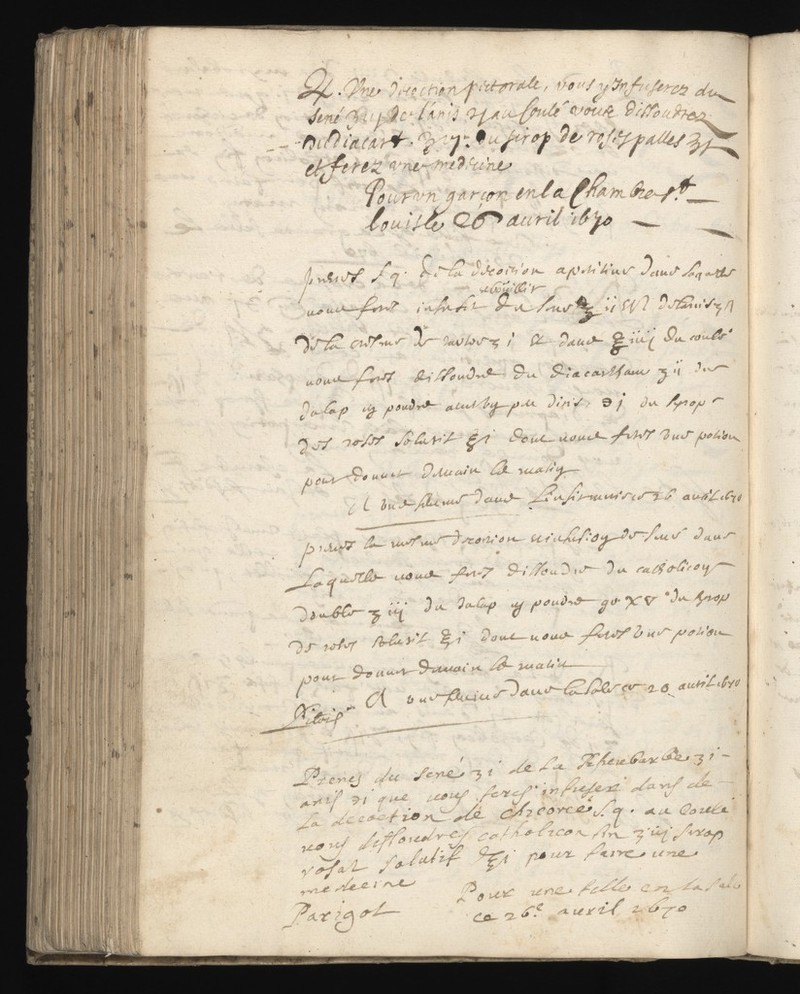 ♃. Une decoction pectorale, vous y Infuserez du
sené ʒ ij de l'anis ʒj au Coulé vous dissoudrez
du diacart. ʒ ij. du sirop de roses palles ℥j
et ferez une medecine
Pour un garçon en la Chambre st.
louis le 26 avril 1670
prenes s q. de la decoction aperitive dans laquelle
vous feres rebouillir du sene de l'anis
de la cresme de tartre ʒ i & dans ℥ iiij du coulé
vous feres dissoudre du diacartham ʒ ii du
Jalap en poudre ℈ j du syrop
des roses solutif ℥ i dont vous feres une potion
pour donner demain le matin
A une dans l'infirmerie ce 26 avril 1670
prenes la mesme decoction infusion de sene dans
Laquelle vous feres dissoudre du catholicon
double ʒ iij du Jalap en poudre gr xv du syrop
de roses solutif ℥ i dont vous feres une potion
pour donner demain le matin
A une dans la sale ce 26 avril 1670
Prenez du sené ʒi de la Rheubarbe ʒi
anis ℈i que vous ferez infuser dans de
la decoction de chicorée s.q. au coulé
vous dissoudres catholicon fin ʒiij sirop
rosat solutif ℥i pour faire une
medecine
Pour une fille en la sale
Parigot
ce 26e avril 1670